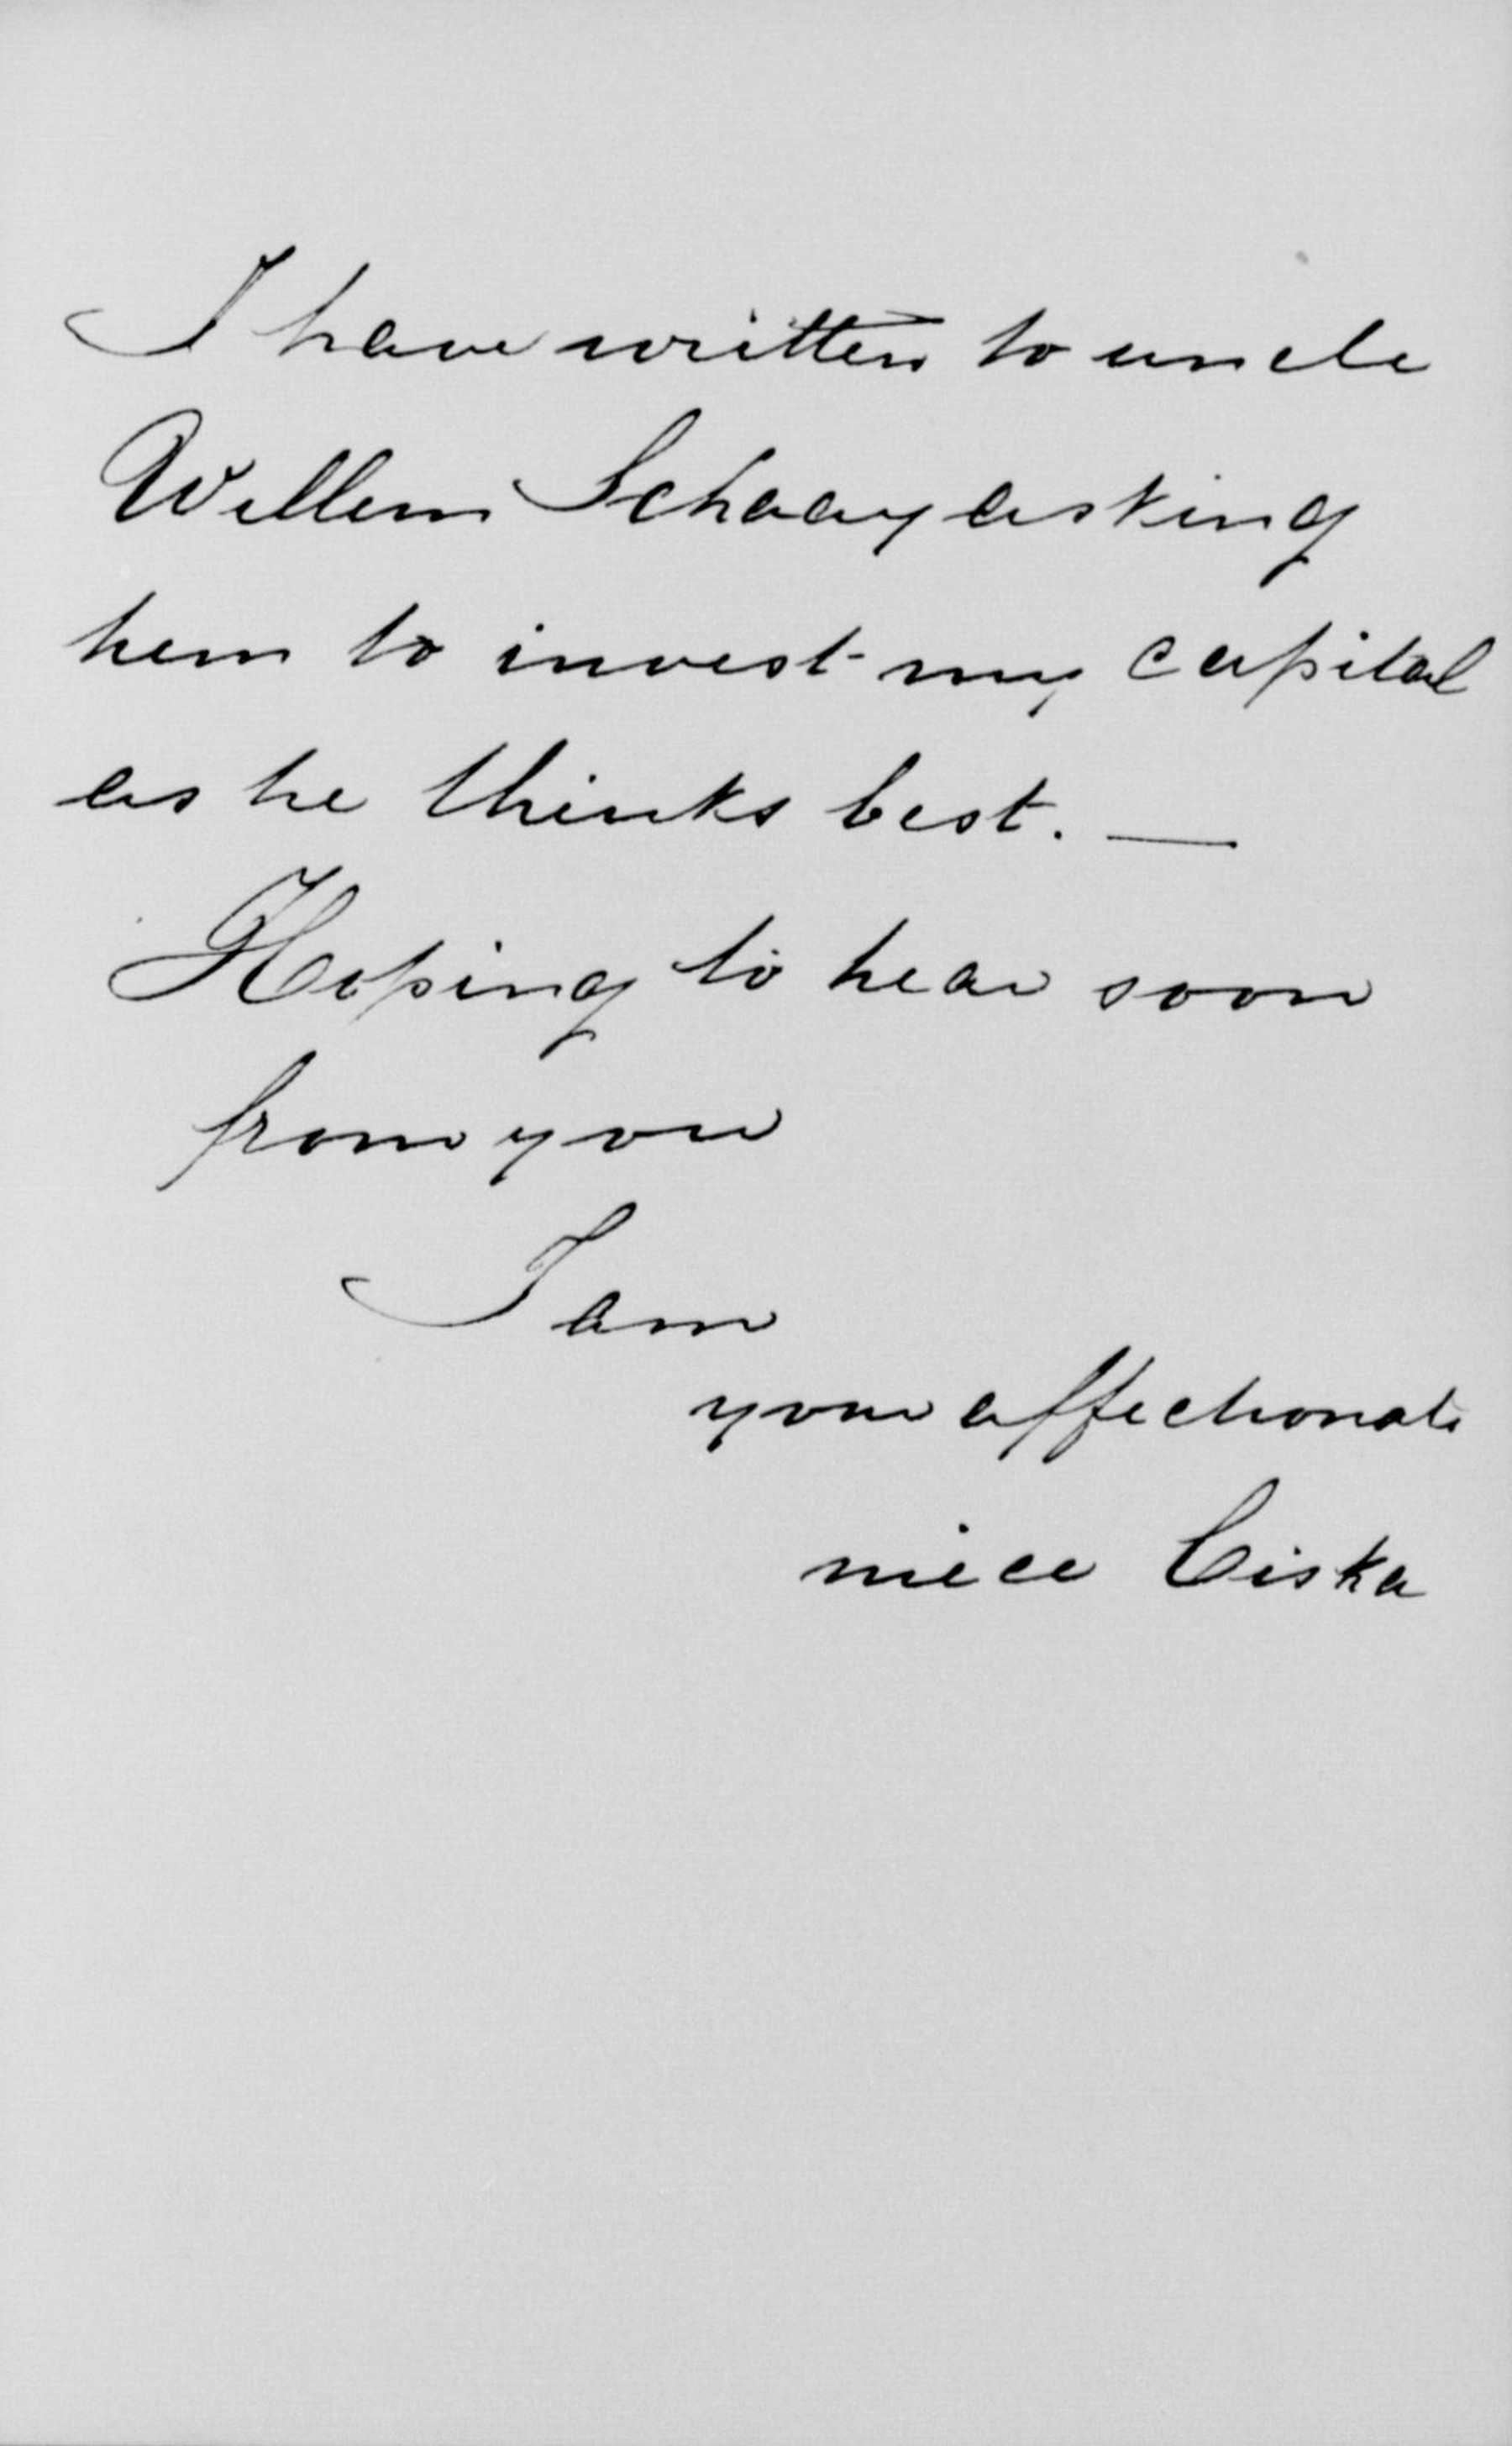 I have written to uncle
Willem Schaay asking
him to invest my capital
as he thinks best. —
Hoping to hear soon
from you
I am
your affectionate
niece Ciska